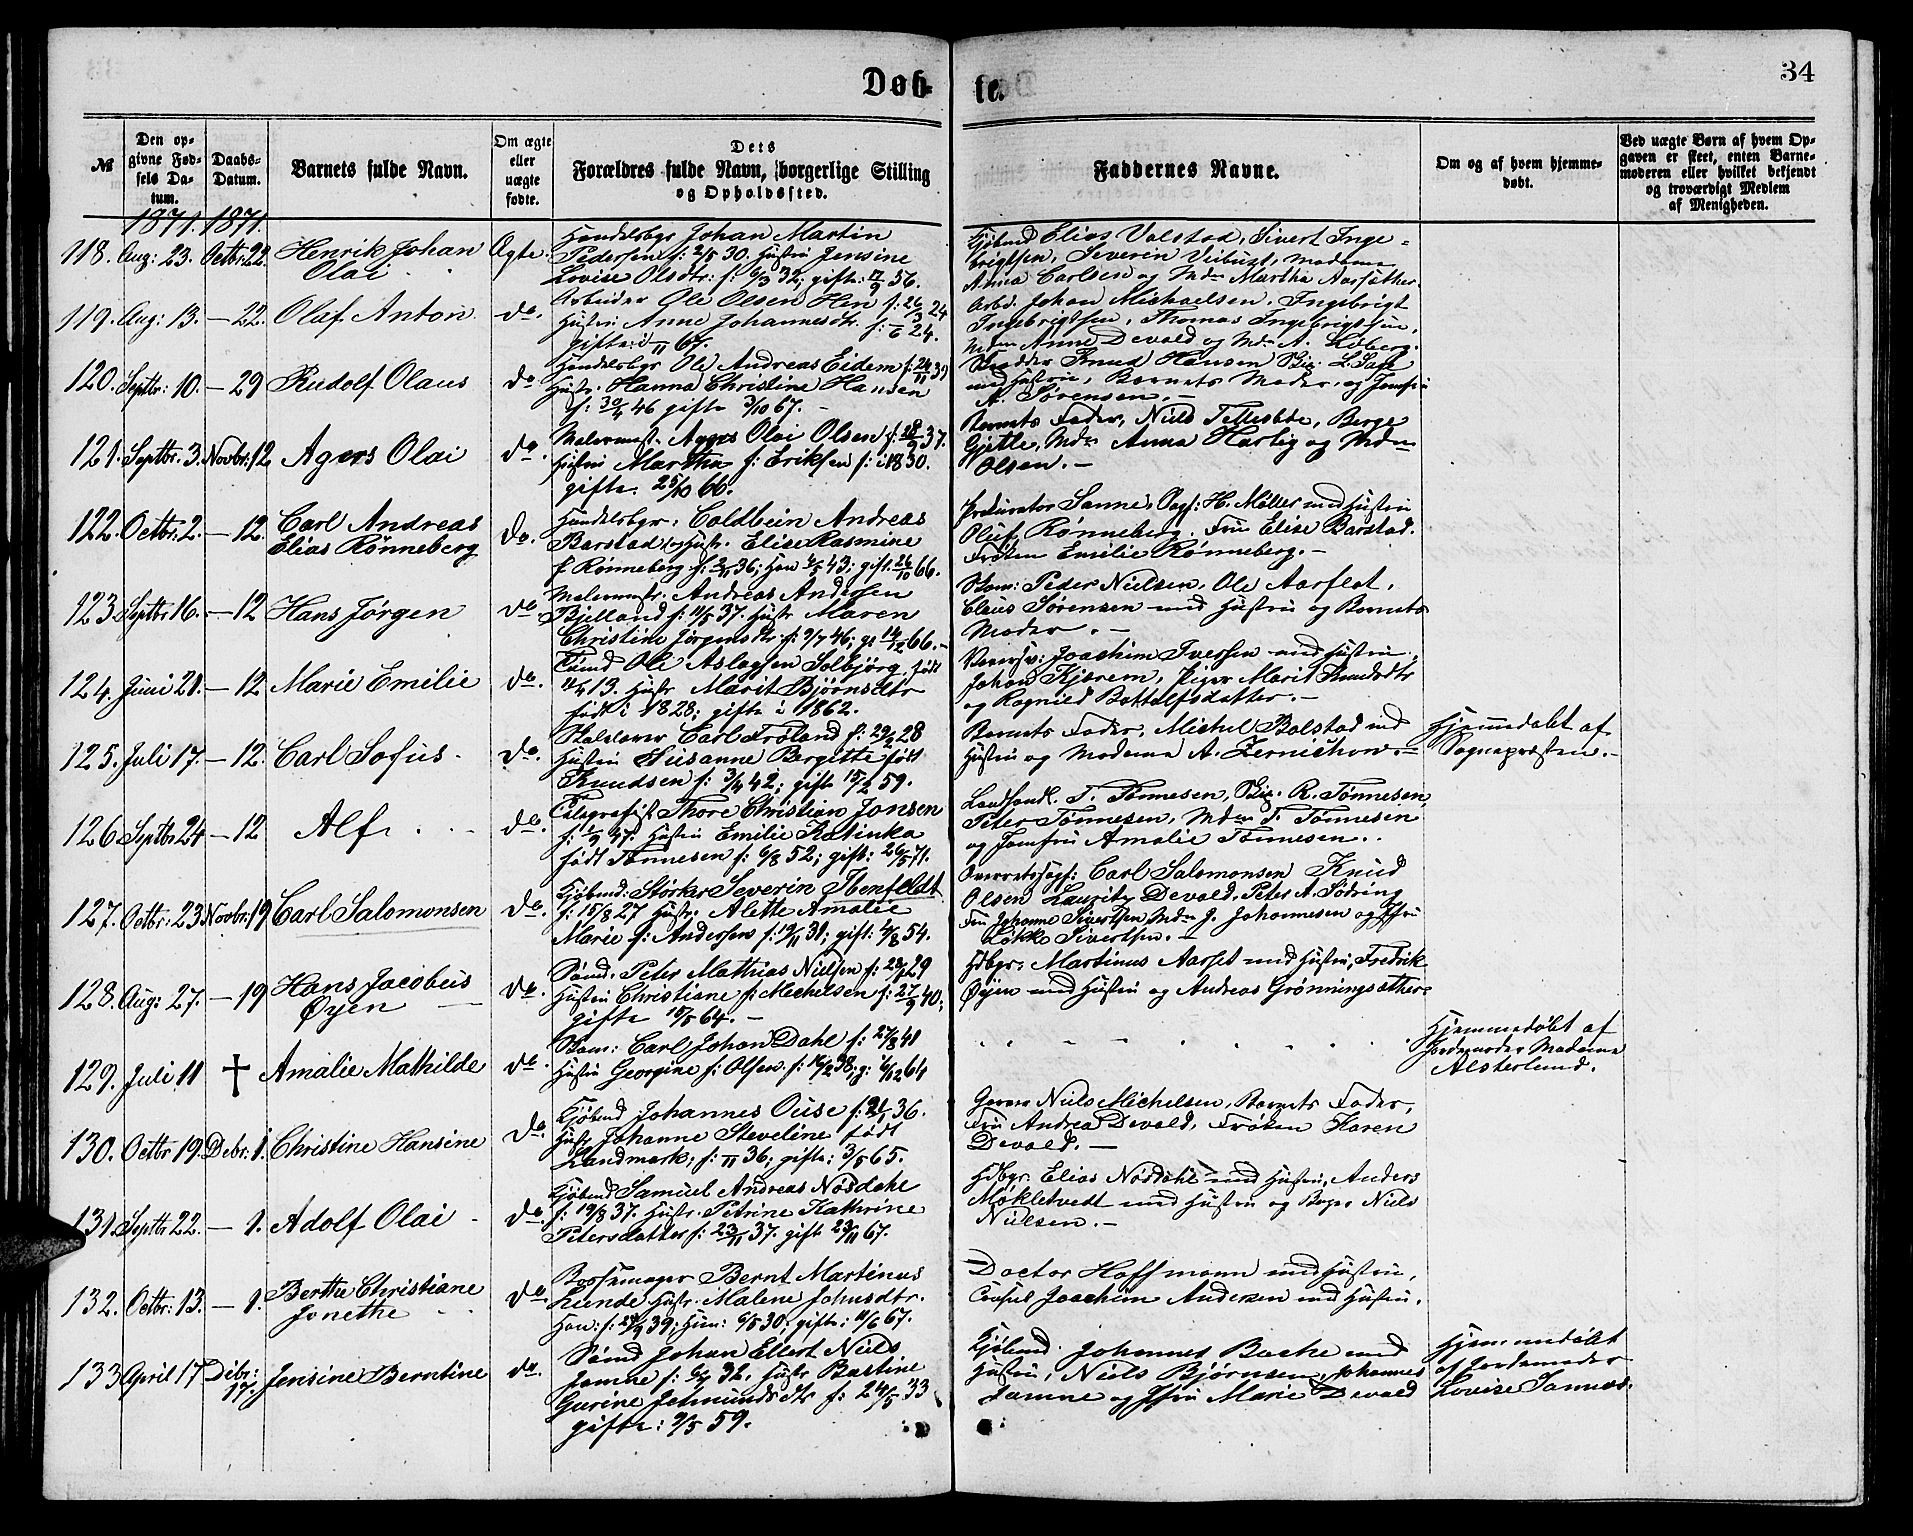 Døb-
te.
34
№
Den op-
givne Fød-
sels Da-
tum.
Daabs-
Datum.
Barnets fulde Navn.
Om ægte
eller
uægte
fødte.
Dets
Forældres fulde Navn, borgerlige Stilling
og Opholdssted.
Faddernes Navne.
Om og af hvem hjemme-
døbt.
Ved uægte Børn af hvem Op-
gaven er skeet, enten Barne-
moderen eller hvilket bekjendt
og troværdigt Medlem
af Menigheden.
1871. 1871.
118. Aug: 23. Octbr: 22. Henrik Johan
Olai
Ægte.
Handelsbgr Johan Martin
Pedersen f: 2/5 30. Hustru Jensine
Lovise Olsdtr: f: 6/3 32; gifte: 17/9 56.
Kjøbmd Elias Valstad, Sivert Inge-
brigtsen, Severin Veibust, Madame
Anna Carlsen og Mdm Martha Aarsæther.
119. Aug: 13. — 22. Olaf Anton
do.
Arbeider Ole Olsen Hen f: 26/3 24
Hustru Anne Johannesdtr. f: 24.
gifte i 67.
Arbd. Johan Michaelsen, Ingebrigt
Ingebrigtsen, Thomas Ingebrigtsen,
Mdm Anne Devold og Mdm A. Løberg.
120. Septbr: 10. — 29 Rudolf Olaus
do
Handelsbgr Ole Andreas Eidem f: 24/11 39
Hustr. Hanna Christine Hansen
f: 30/4 46 gifte 3/10 67.
Knud Hansen
med Hustru, Barnets Moder, og Jomfru
A. Sørensen.
121. Septbr. 3. Novbr: 12 Agers Olai
do.
Malermest. Agers Olai Olsen f: 28/9 37.
Hustru Martha f: Eriksen f: i 1830.
gifte. 25/10 66.
Barnets Fader, Niels Berge
Gjelle, Mdm Anna Hartig og Mdm
Olsen.
122. Octbr. 2. — 12. Carl Andreas
Elias Rønneberg
do.
Handelsbgr. Coldbein Andreas
Barstad og Hustr. Elise Rasmine
f Rønneberg f: 36; Hun 43; gift. 26/10 66.
Prokurator Sanne, Sagf: H. Møller med Hustru
Oluf Rønneberg, Fru Elise Barstad.
Frøken Emilie Rønneberg.
123. Septbr 16. — 12 Hans Jørgen
do
Malermstr. Andreas Andersen
Bjelland f: 11/5 37. Hustr Maren
Christine Jørgensdtr f: 9/7 46; g: 66.
Peder Nielsen, Ole Aarflot,
Claus Sørensen med Hustru og Barnets
Moder.
124. Juni 21. — 12 Marie Emilie
do.
Tømd Ole Aslagsen Solbjørg, født
13. Hustr Marit Bjørnsdtr
født i 1828; gifte i 1862.
Joachim Iversen med Hustru,
Johan Kjærem, Piger Marit Knudsdtr
og Ragnild Battolfsdatter.
125. Juli 17. — 12. Carl Sofus
do.
Carl Frøland f: 22/2 28
Hustru Susanne Bergitte født
Knudsen f: 3/4 42; gifte 15/2 59.
Barnets Fader, Michel Bolstad md
Hustru og Madame A. Zernichow.
Hjemmedøbt af
Sognepræsten.
126 Septbr 24 — 12 Alf
do.
Telegrafist Thore Christian Jonsen
f: 47; Hustru Emilie Katinka
født Tønnesen f: 6/8 52; gift: 26/5 71.
Landhandl. T. Tønnesen, R. Tønnesen,
Peter Tønnesen, Mdm T. Tønnesen
og Jomfru Amalie Tønnesen.
127. Octbr: 23. Novbr: 19 Carl Salomonsen
do.
Kjøbmd: Størker Severin Ibenfeldt
f: 15/8 27 Hustr: Alette Amalie
Marie f: Andersen f: 19/11 31; gift: 4/8 54.
Overretssagf: Carl Salomonsen Knud
Olsen Lauritz Devold, Peter A. Sødring
Fru Johanne Sivertsen Mdm J. Johannesen og Jfru
Løkke Sivertsen.
128. Aug: 27. — 19 Hans Jacobus
Øyen
do.
Sømd. Peter Mathias Nielsen f: 29
Hustru Christiane f: Michelsen f: 27/9 40;
gifte 15/5 64.
Hdbgr: Martinus Aarset med Hustru, Fredrik
Øyen med Hustru og Andreas Grønningsæther
129. Juli 11 † Amalie Mathilde
do.
Carl Johan Dahl f: 27/8 41
Hustru Georgine f: Olsen f: 16/2 38; g: 64
Hjemmedøbt af
Jordemoder Madame
Alsterlund.
130. Octbr 19. Debr: 1. Christine Hansine
do
Kjøbmd Johannes Ouse f: 36.
Hustr Johanne Steveline født
Landmark; f: 36; gifte: 3/5 65.
Niels Michelsen, Barnets Fader,
Fru Andrea Devold, Frøken Karen
Devold.
131. Septbr 22. — 1. Adolf Olai
do.
Kjøbmd Samuel Andreas Nosdahl
f: 19/8 37. Hustr. Petrine Kathrine
Petersdatter f: 23/11 37. gifte 23/11 67.
Hdbgr. Elias Nøsdahl med Hustru, Anders
Møkletvedt med Hustru og Bager Niels
Nielsen.
132. Octbr: 13. — 1. Berthe Christiane
Jonethe
do
Bøssemager Bernt Martinus
Lunde Hustr. Malene Johnsdtr.
Han: f: 39; Hun: 6/8 30; gifte: 11/6 67.
Doctor Hoffmann med Hustru,
Consul Joachim Andersen med Hustru.
133 April 17 Debr: 17. Jensine Berntine
do.
Sømd Johan Ellert Niels
Jamne f: 32, Hustr Bastine
Gurine Jetmundsdtr f: 24/5 33
gifte: 9/5 59.
Kjøbmd. Johannes Backe med
Hustru, Niels Bjørnsen, Johannes
Jamne og Jfru Marie Devold
Hjemmedøbt
af Jordemoder
Lovise Sannæs.